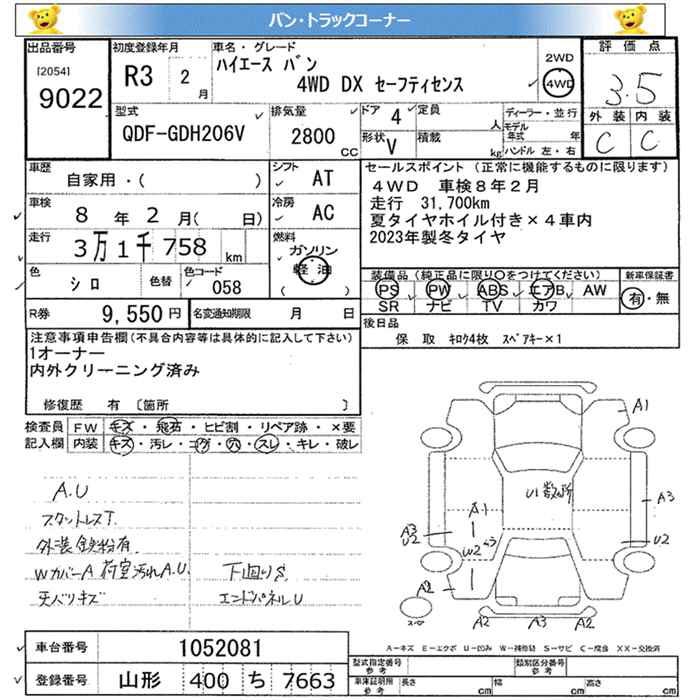 バン・トラックコーナー
出品番号
[2054]
9022
初度登録年月
R3 2月
車名・グレード
ハイエース バン
4WD DX セーフティセンス
2WD
4WD
評価点
3.5
外装 内装
C C
型式
QDF-GDH206V
排気量
2800 CC
ドア 4
形状 V
定員 人
積載 kg
ディーラー・並行
モデル年式 年
ハンドル 左・右
車歴
自家用・( )
シフト AT
車検
8年2月(日)
冷房 AC
走行
3万1千758km
燃料
ガソリン
(軽油)
色 シロ
色替
色コード 058
R券 9,550円
名変通知期限 月 日
セールスポイント (正常に機能するものに限ります)
4WD 車検8年2月
走行 31,700km
夏タイヤホイル付き×4車内
2023年製冬タイヤ
装備品(純正品に限り○をつけてください)
PS PW ABS エアB AW
SR ナビ TV カワ
新車保証書
有・無
後日品
保 取 キロク4枚 スペアキー×1
注意事項申告欄(不具合内容等は具体的に記入して下さい)
1オーナー
内外クリーニング済み
修復歴 有 〔箇所 〕
検査員 FW キズ・飛石・ヒビ割・リペア跡・×要
記入欄 内装 キズ・汚レ・コゲ・穴・スレ・キレ・破レ
A.U
スタットレスT.
外装鉄粉有
WカバーA 荷室汚れA.U.
下回りS
天バリキズ
エンドパネルU
A1
U1数ヶ所
A1
A3
A3
U2
W2
U2
A2
A2 A3 A2
A=キズ E=エクボ U=凹み W=補修跡 S=サビ C=腐食 XX=交換済
車台番号 1052081
登録番号 山形 400 ち 7663
型式指定番号 参考
類別区分番号 参考
車庫証明用 参考
長さ cm 幅 cm 高さ cm